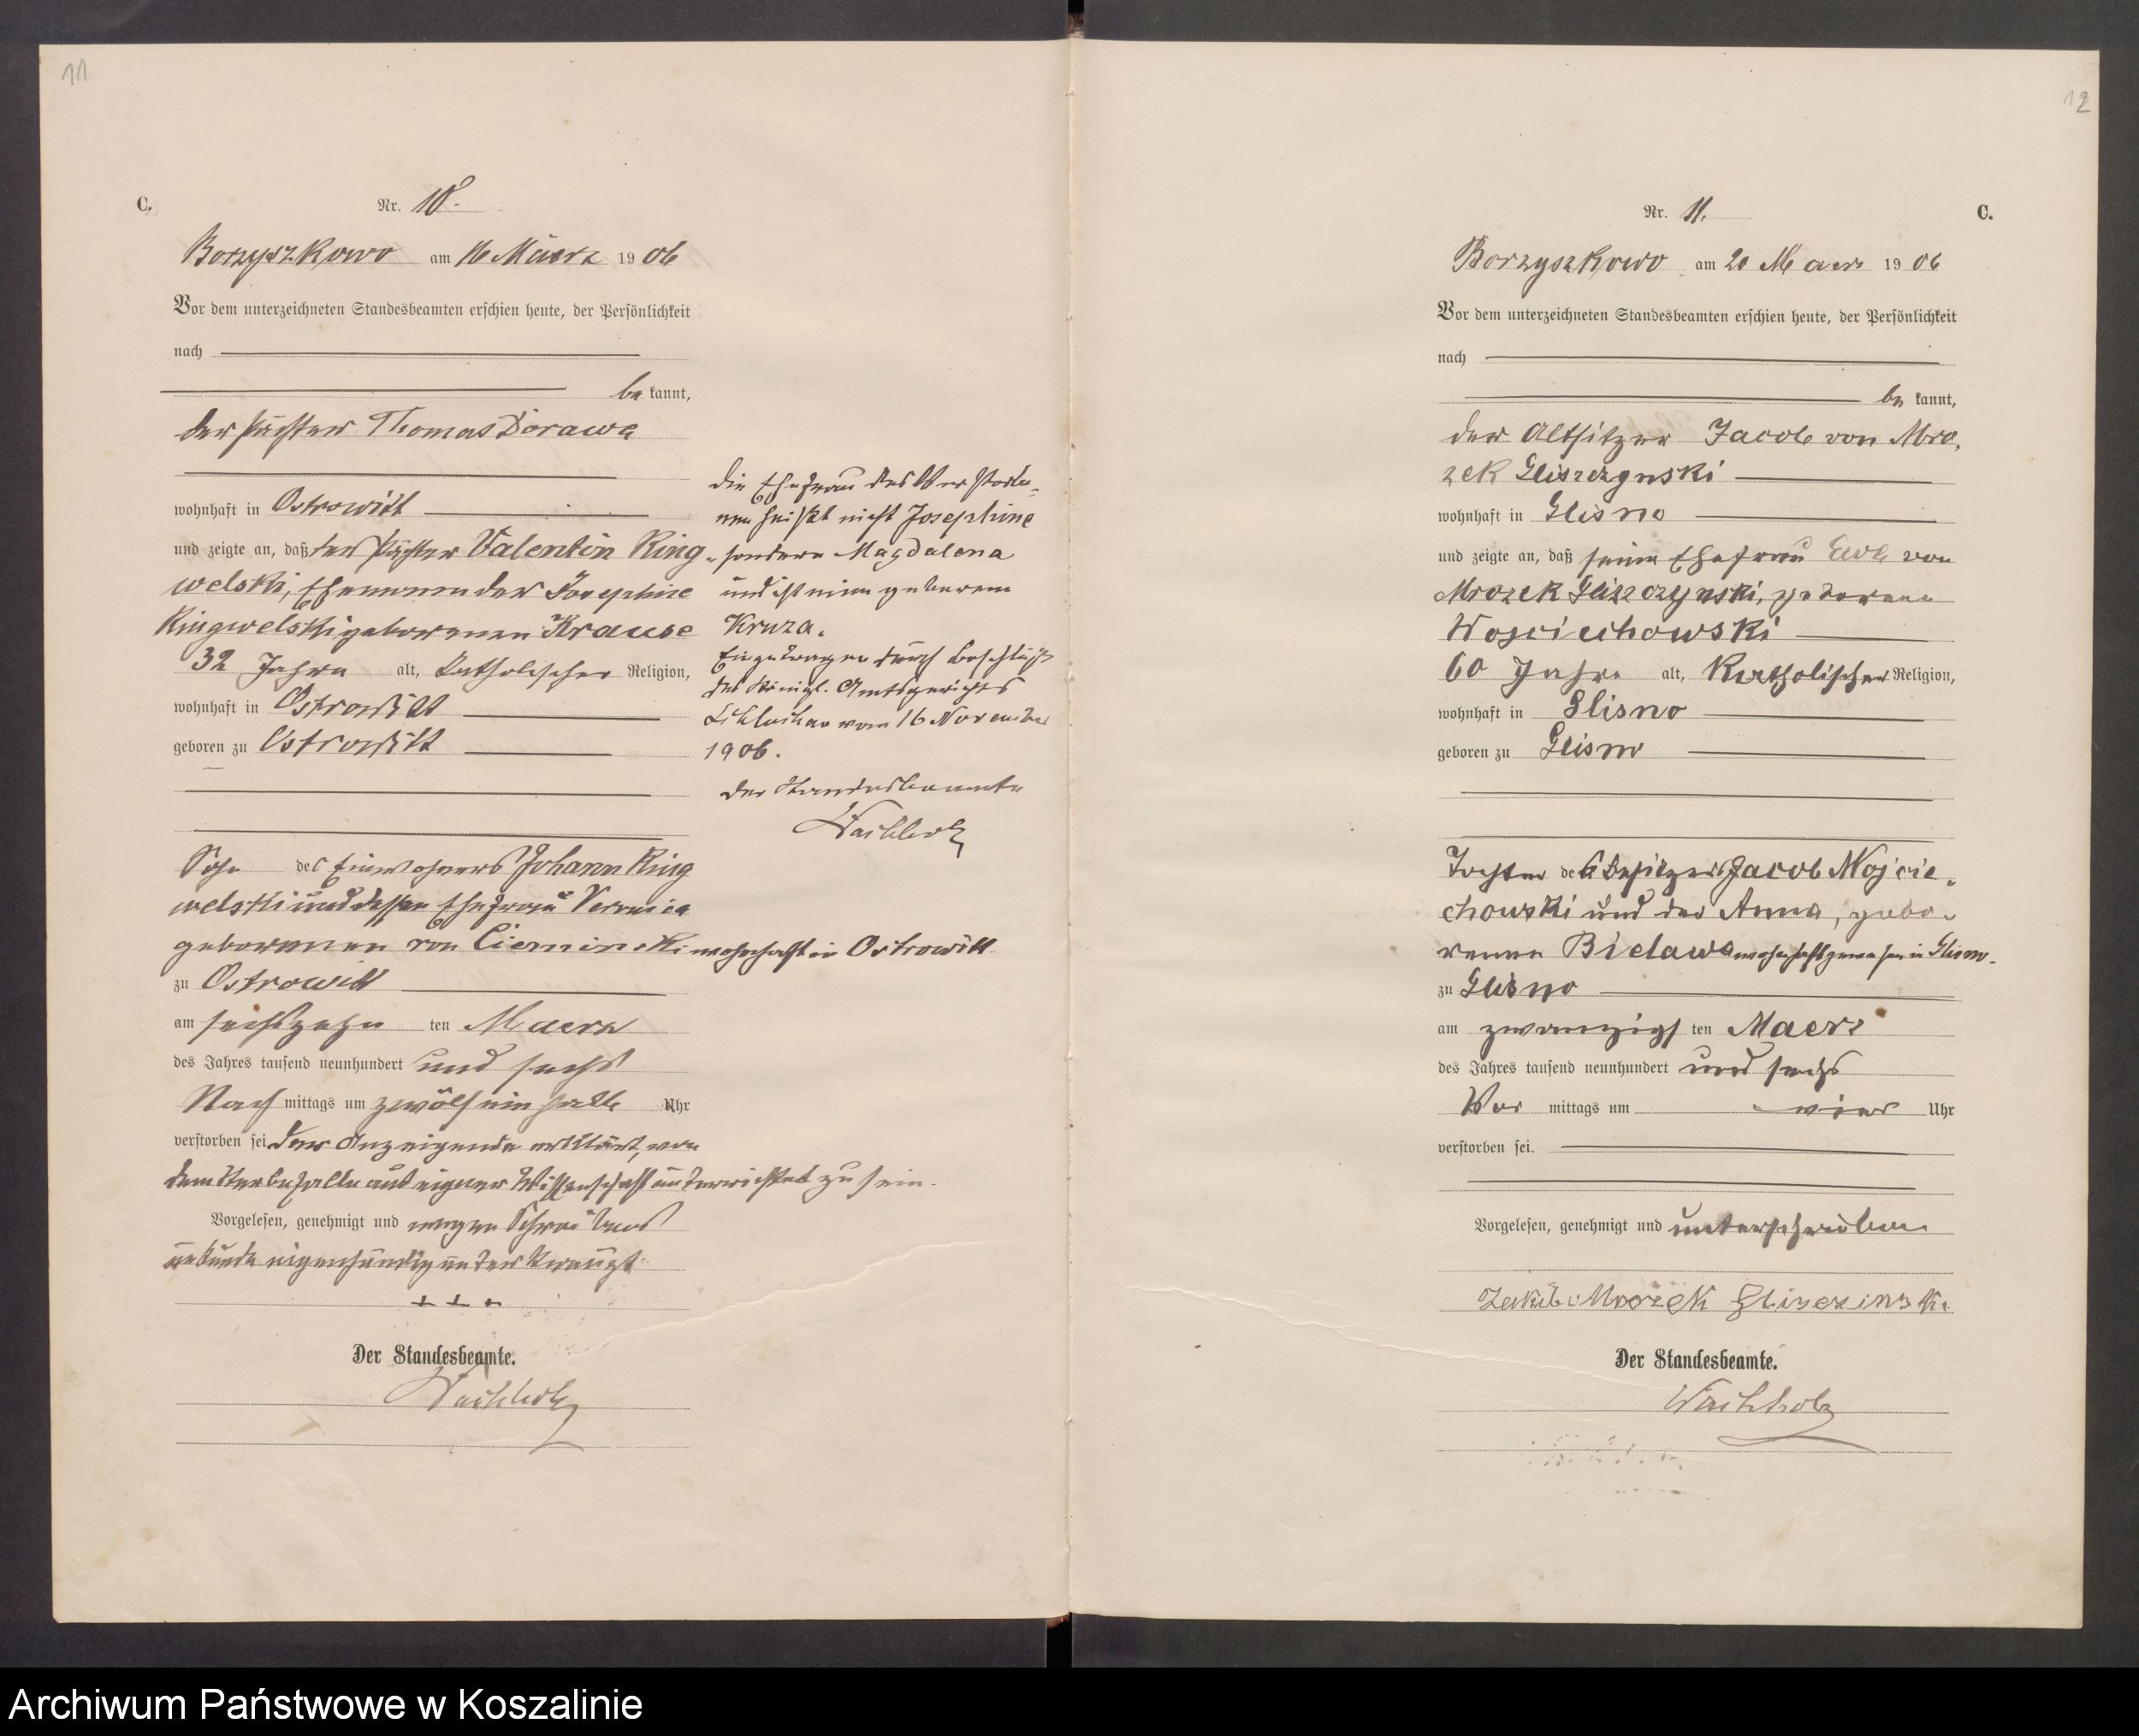 11
C.
Nr. 10.
Borzyszkowo am 16 Maerz 1906
Vor dem unterzeichneten Standesbeamten erschien heute, der Persönlichkeit
nach
be kannt,
der Pächter Thomas Dorawa
wohnhaft in Ostrowitt
und zeigte an, daß der Pächter Valentin Ring-
welski, Ehemann der Josephine
Ringwelski geborenen Krause
32 Jahre alt, katholischer Religion,
wohnhaft in Ostrowitt
geboren zu Ostrowitt
Sohn des Einwohners Johann Ring
welski und dessen Ehefrau Veronica
geborenen von Cieminski wohnhaft in Ostrowitt
zu Ostrowitt
am sechszehn ten Maerz
des Jahres tausend neunhundert und sechs
Nach mittags um zwölf ein halb Uhr
verstorben sei. Der Anzeigende erklärt, von
dem Sterbefalle aus eigner Wissenschaft unterrichtet zu sein.
Vorgelesen, genehmigt und wegen Schreibens
unkunde eigenhändig unterkreuzt
+ + +
Der Standesbeamte.
Wachholz
Die Ehefrau des Verstorbe-
nen heißt nicht Josephine
sondern Magdalena
und ist eine geborene
Kruza.
Eingetragen durch Beschluß
des Königl. Amtsgerichts
Schlochau vom 16 November
1906.
Der Standesbeamte
Wachholz
12
Nr. 11.
C.
Borzyszkowo am 20 Maerz 1906
Vor dem unterzeichneten Standesbeamten erschien heute, der Persönlichkeit
nach
be kannt,
der Altsitzer Jacob von Mro-
zek Gliszczynski
wohnhaft in Glisno
und zeigte an, daß seine Ehefrau Eva von
Mrozek Gliszczynski, geborene
Wojciechowski
60 Jahre alt, katholischer Religion,
wohnhaft in Glisno
geboren zu Glisno
Tochter des Besitzers Jacob Wojcie-
chowski und der Anna, gebo-
renen Bielawa wohnhaft gewesen in Glisno.
zu Glisno
am zwanzigs ten Maerz
des Jahres tausend neunhundert und sechs
Vor mittags um vier Uhr
verstorben sei.
Vorgelesen, genehmigt und unterschrieben
Jakób Mrozek Gliszczinski
Der Standesbeamte.
Wachholz
Archiwum Państwowe w Koszalinie